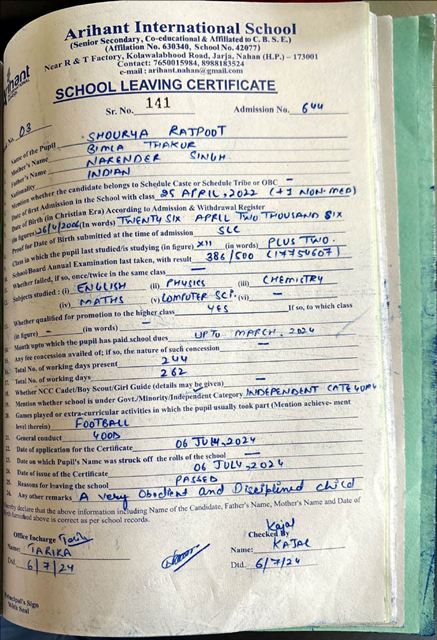 Arihant International School
(Senior Secondary, Co-educational & Affiliated to C.B.S.E.)
(Affiliation No. 630340, School No. 42077)
Near R & T Factory, Kolawalabhood Road, Jarja, Nahan (H.P.) - 173001
Contact: 7650015984, 8988183524
e-mail : arihant.nahan@gmail.com
SCHOOL LEAVING CERTIFICATE
Sr. No. 141 Admission No. 644
No. 03
Name of the Pupil SHOURYA RAJPOOT
Mother's Name BIMLA THAKUR
Father's Name NARENDER SINGH
Nationality INDIAN
Mention whether the candidate belongs to Schedule Caste or Schedule Tribe or OBC -
Date of first Admission in the School with class 25 APRIL, 2022 (+1 NON-MED)
Date of Birth (in Christian Era) According to Admission & Withdrawal Register
(in figures) 26/4/2006 (in words) TWENTY SIX APRIL TWO THOUSAND SIX
Proof for Date of Birth submitted at the time of admission SLC
Class in which the pupil last studied/is studying (in figure) XII (in words) PLUS TWO
School/Board Annual Examination last taken, with result 386/500 (17754607)
Whether failed, if so, once/twice in the same class -
Subjects studied : (i) ENGLISH (ii) PHYSICS (iii) CHEMISTRY
(iv) MATHS (v) COMPUTER SCI. (vi) -
Whether qualified for promotion to the higher class YES If so, to which class
(in figure) - (in words) -
Month upto which the pupil has paid school dues UPTO MARCH, 2024
Any fee concession availed of; if so, the nature of such concession -
16. Total No. of working days present 244
17. Total No. of working days 262
18. Whether NCC Cadet/Boy Scout/Girl Guide (details may be given) -
19. Mention whether school is under Govt./Minority/Independent Category INDEPENDENT CATEGORY
20. Games played or extra-curricular activities in which the pupil usually took part (Mention achieve- ment
level therein) FOOTBALL
21. General conduct GOOD
22. Date of application for the Certificate 06 JULY, 2024
23. Date on which Pupil's Name was struck off the rolls of the school -
24. Date of issue of the Certificate 06 JULY, 2024
25. Reasons for leaving the school PASSED
26. Any other remarks A very Obedient and Disciplined child
hereby declare that the above information including Name of the Candidate, Father's Name, Mother's Name and Date of
Birth furnished above is correct as per school records.
Office Incharge Checked By Kajal
Name: TARIKA Name: KAJAL
Dtd. 6/7/24 Dtd. 6/7/24
Principal's Sign
With Seal